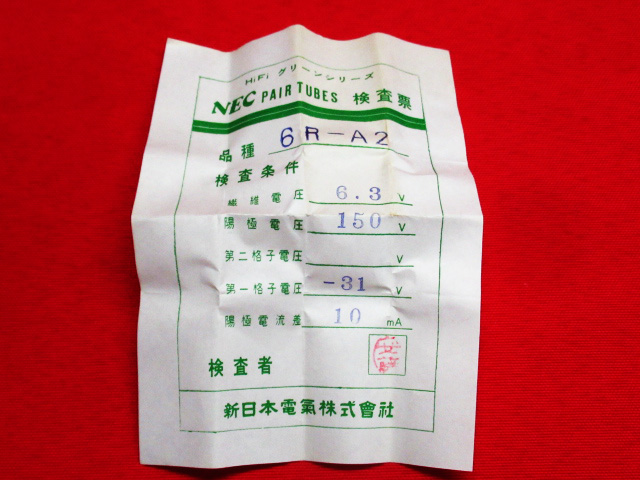 HiFi グリーンシリーズ
NEC PAIR TUBES 検査票
品種 6R-A2
検査条件
繊維電圧 6.3 V
陽極電圧 150 V
第二格子電圧 V
第一格子電圧 -31 V
陽極電流差 10 mA
検査者
新日本電氣株式會社